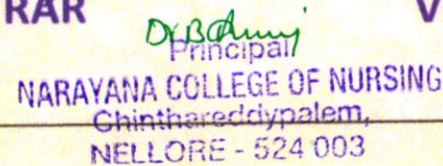 RAR V
Principal
NARAYANA COLLEGE OF NURSING
Chinthareddypalem,
NELLORE - 524 003